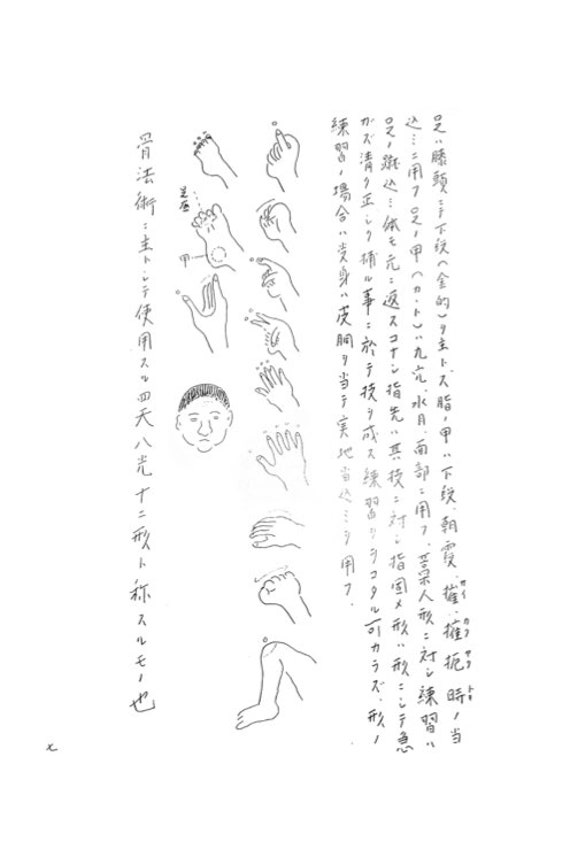 足ハ膝頭ニテ下段(金的)ヲ主トス、脂ノ甲ハ下段、朝霞、摧、擁扼時ノ当
カイ
カク
ヤク
トキ
込ミニ用フ足ノ甲(カント)ハ九穴、水月、面部ニ用フ、藁人形ニ対シ練習ハ
足ノ蹴込ミ体モ元ニ返スコナシ指先ハ其技ニ対シ指固メ形ハ形ニシテ急
ガズ清ク正シク捕ル事ニ於テ技ヲ成ス練習ヲヲコタル可カラズ、形ノ
練習ノ場合ハ受身ハ皮胴ヲ当テ実地当込ミヲ用フ.
足
甲
骨法術ニ主トシテ使用スル四天八光十二形ト称スルモノ也
七